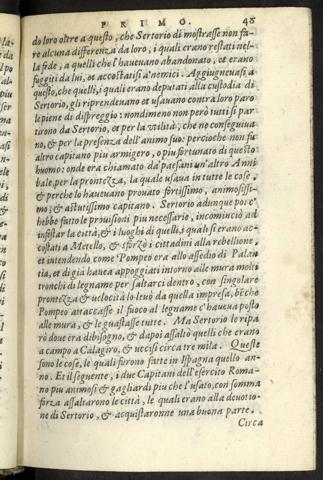 PRIMO. 48
do loro oltre a questo, che Sertorio di mostrasse non fa-
re alcuna differenza da loro, i quali erano restati nel-
la fede, a quelli che l'haueuano abandonato, et erano
fuggiti da lui, et accostatisi a'nemici. Aggiugneuasi a
questo, che quelli, i quali erano deputati alla custodia di
Sertorio, gli riprendeuano et usauano contra loro paro
le piene di dispreggio: nondimeno non però tutti si par
tirono da Sertorio, et per la vtilità, che ne conseguiua
no, & per la presenza dell'animo suo: percioche non fu
altro capitano piu armigero, o piu fortunato di questo
huomo: onde era chiamato da' paesani un'altro Anni
bale per la prontezza, la quale usaua in tutte le cose,
& perche lo haueuano prouato fortissimo, animosissi-
mo, & astutissimo capitano. Sertorio adunque poi c'
hebbe fatto le prouisioni piu necessarie, incominciò ad
infestar le città, & i luoghi di quelli, i quali si erano ac-
costati a Metello, & sforzò i cittadini alla rebellione,
et intendendo come Pompeo era allo assedio di Palan
tia, et di già haueua appoggiati intorno alle mura molti
tronchi di legname per saltarci dentro, con singolare
prontezza & uelocità lo leuò da quella impresa, bẽche
Pompeo attaccasse il fuoco al legname c'haueua posto
alle mura, & le guastasse tutte. Ma Sertorio le ripa
rò doue era dibisogno, & dapoi assaltò quelli che erano
a campo a Calagiro, & uccisi circa tre mila. Queste
sono le cose, le quali furono fatte in Ispagna quello an-
no. Et il seguente, i due Capitani dell'esercito Roma-
no piu animosi & gagliardi piu che l'usato, con somma
forza assaltarono le città, le quali erano alla deuotio-
ne di Sertorio, & acquistaronne una buona parte.
Circa